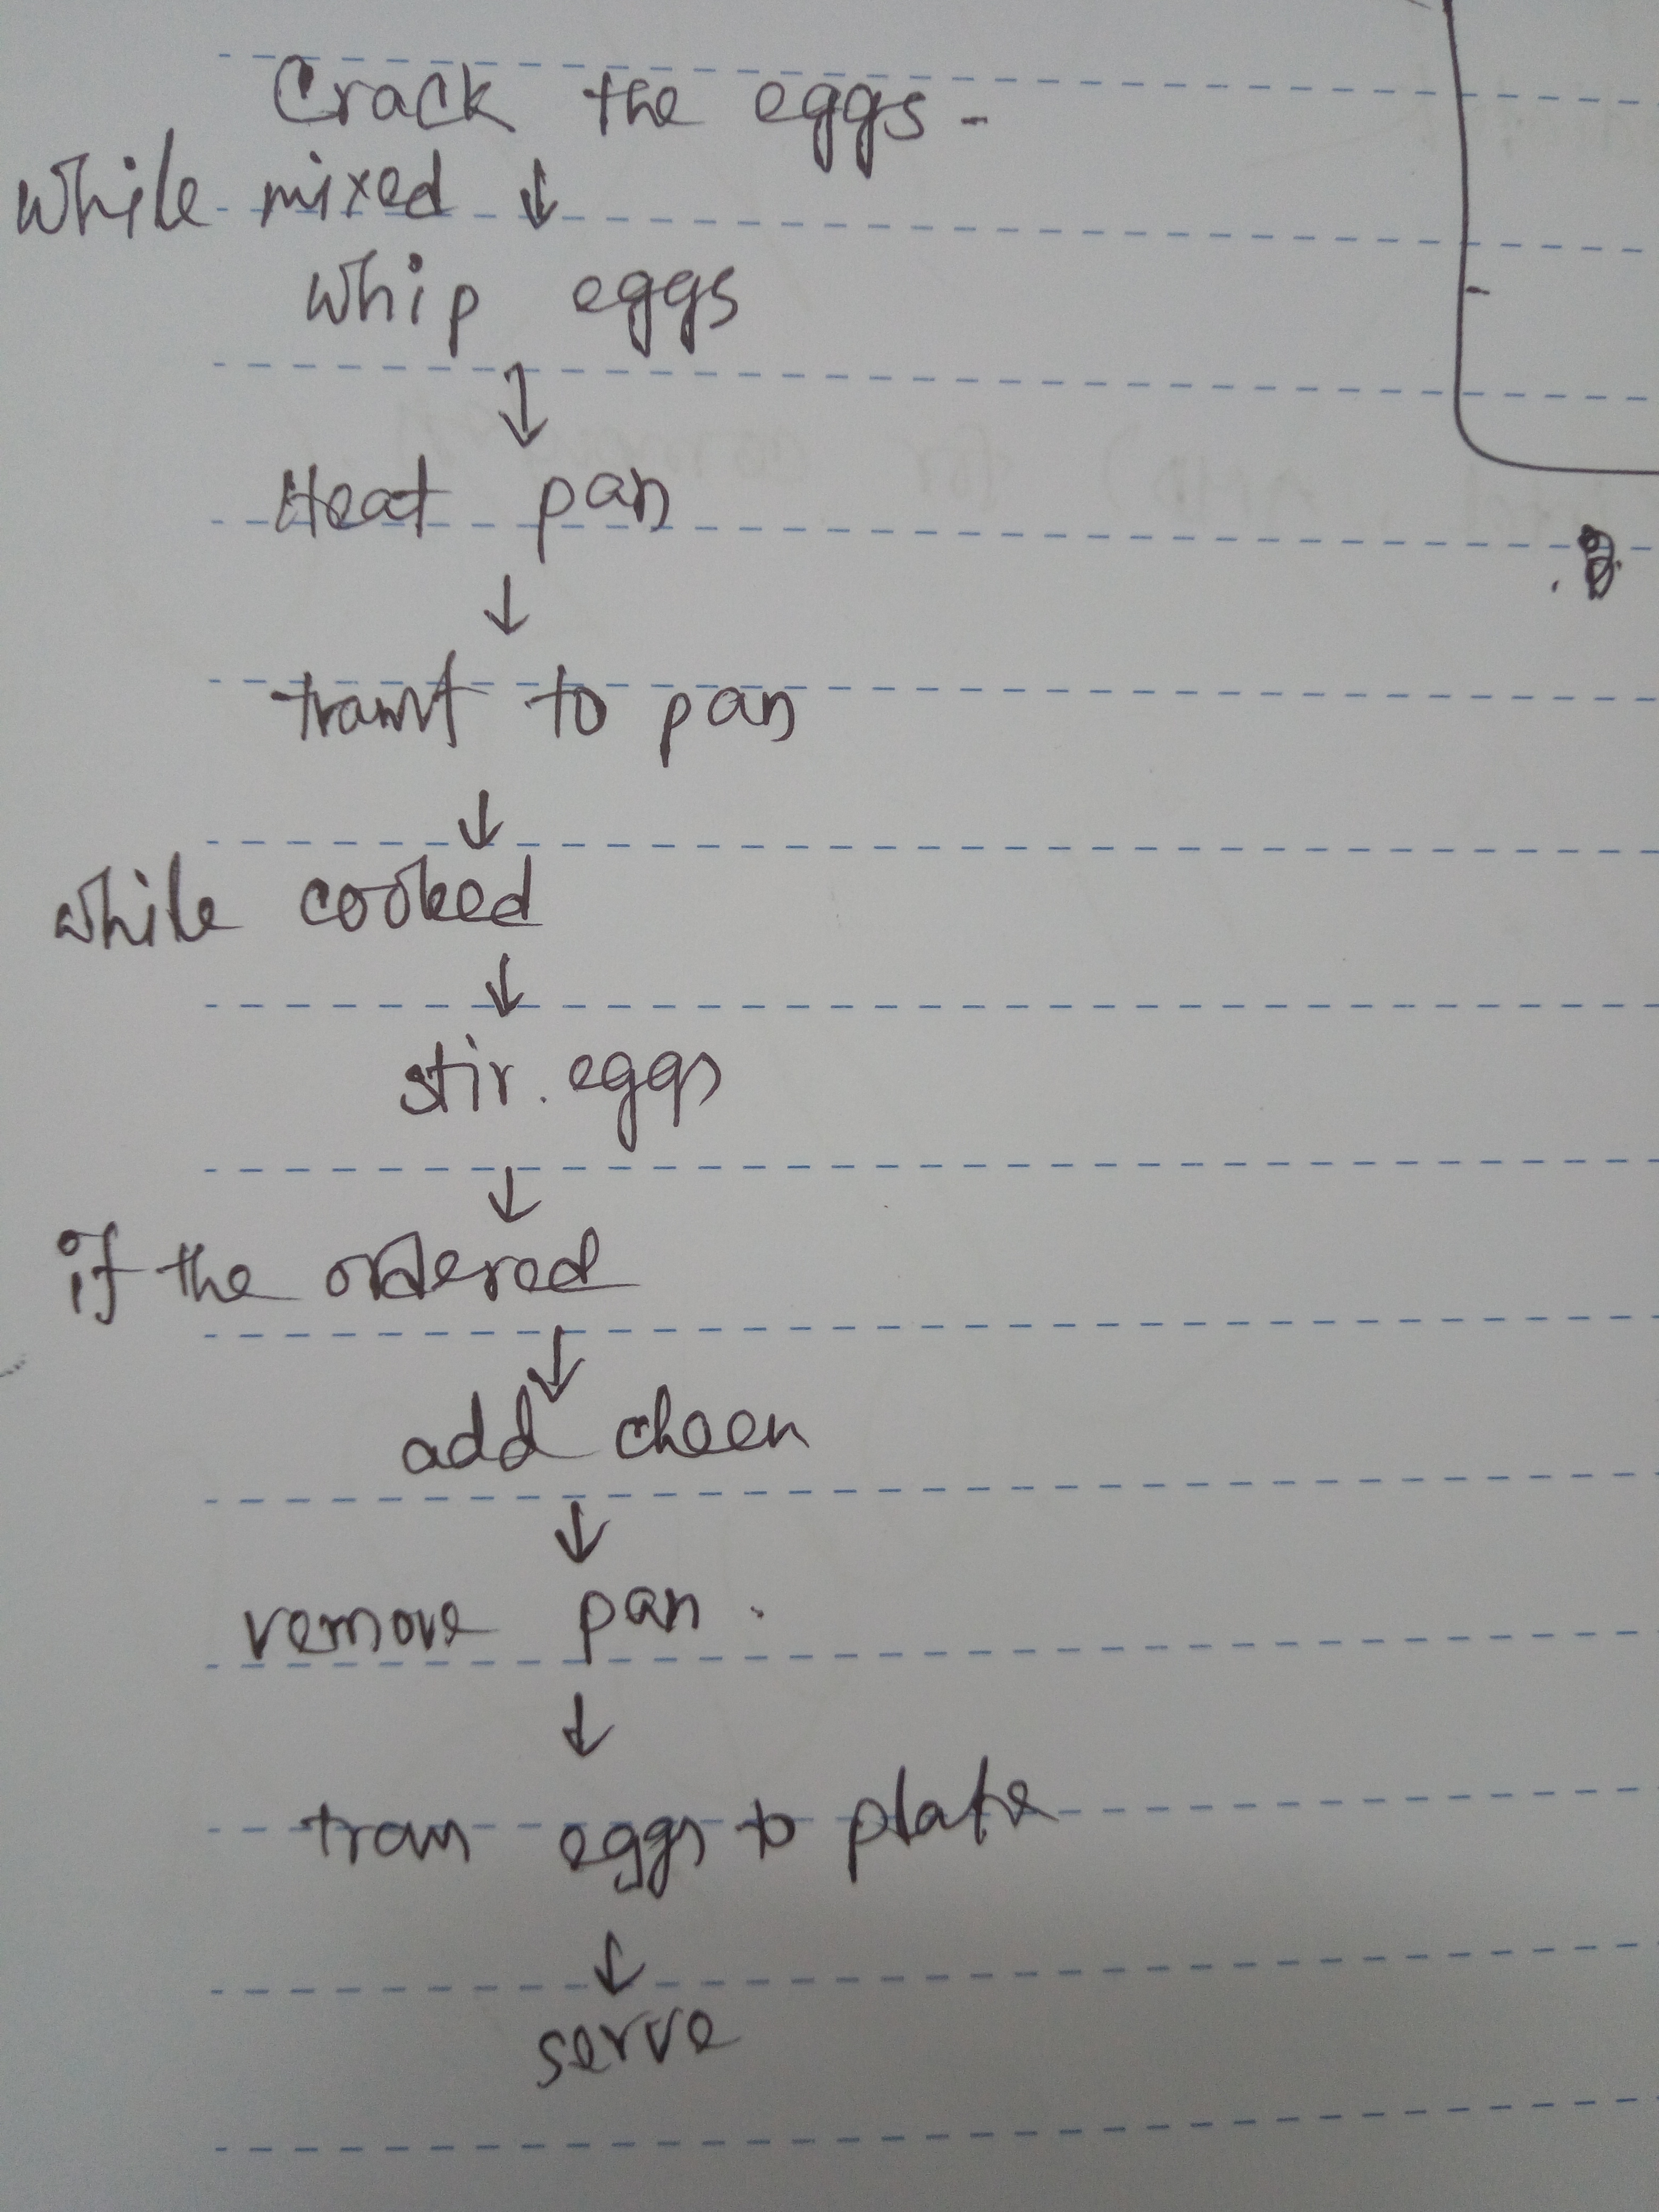 Crack the eggs -
while mixed ↓
whip eggs
↓
Heat pan
↓
to pan
↓
while cooked
↓
stir. eggs
↓
if the ordered
↓
add
↓
remove pan.
↓
tran eggs to plate
↓
serve